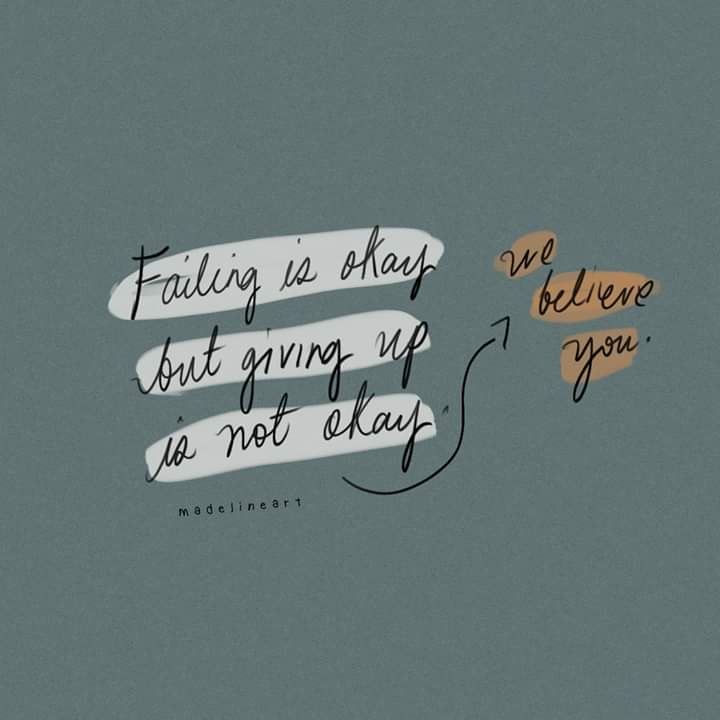 Failing is okay
but giving up
is not okay
we
believe
you.
madelineart